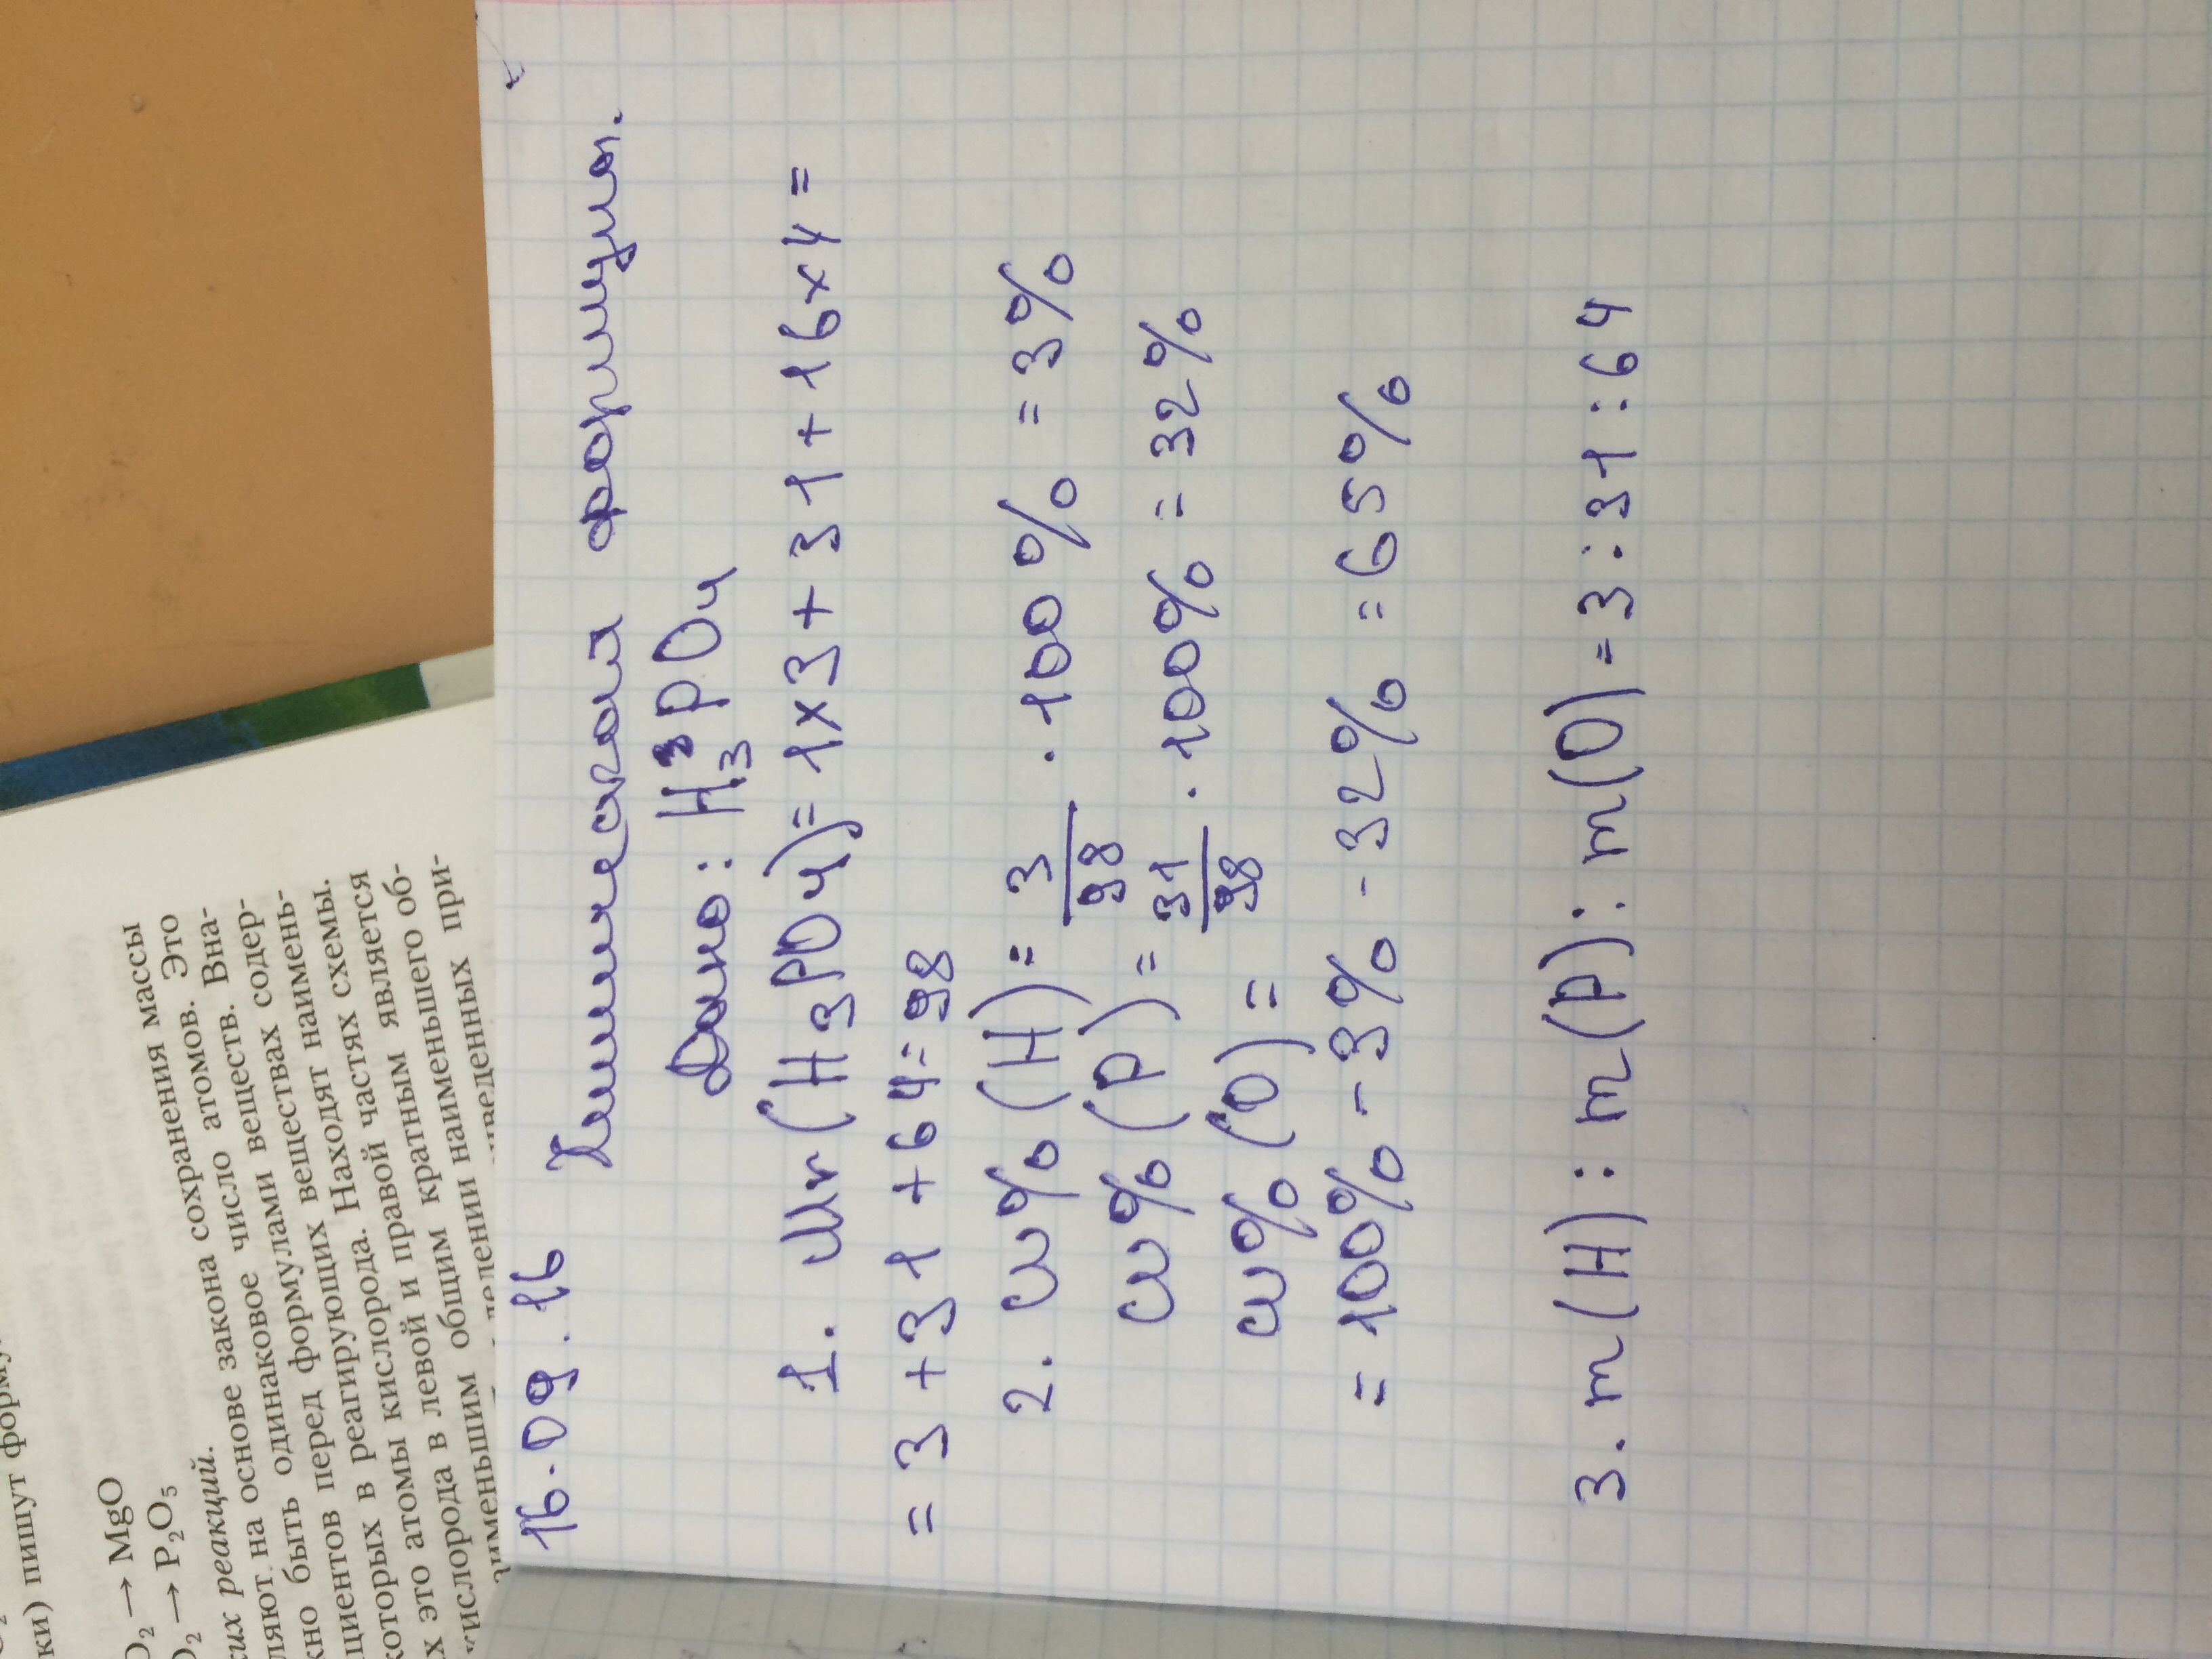 ки) пишут
O₂ → MgO
O₂ → P₂O₅
ких реакций.
ляют на основе закона сохранения массы
жно быть одинаковое число атомов. Это
циентов перед формулами веществ. Вна-
которых в реагирующих веществах содер-
х это атомы кислорода. Находят наимень-
кислорода в левой и правой частях схемы.
аименьшим общим кратным является
делении наименьшего об-
иведенных при-
16.09.16
Химическая формула.
Дано: H₃PO₄
1. Mr(H₃PO₄)= 1×3+31+16×4=
= 3+31+64=98
2. ω%(H)= 3/98 · 100% = 3%
ω%(P)= 31/98 · 100% = 32%
ω%(O)=
= 100% - 3% - 32% = 65%
3. m(H) : m(P) : m(O) = 3:31:64